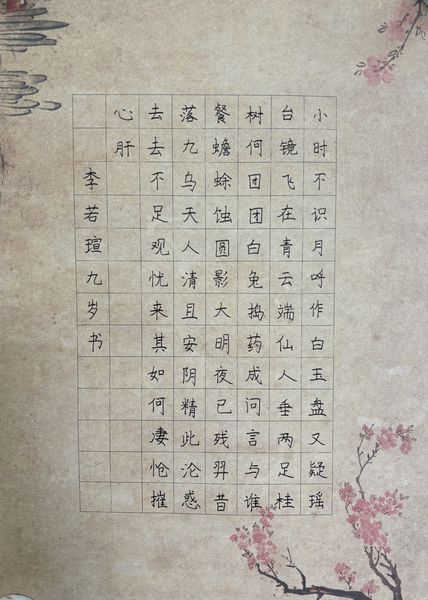 小时不识月呼作白玉盘又疑瑶
台镜飞在青云端仙人垂两足桂
树何团团白兔捣药成问言与谁
餐蟾蜍蚀圆影大明夜已残羿昔
落九乌天人清且安阴精此沦惑
去去不足观忧来其如何凄怆摧
心肝
李若瑄九岁书